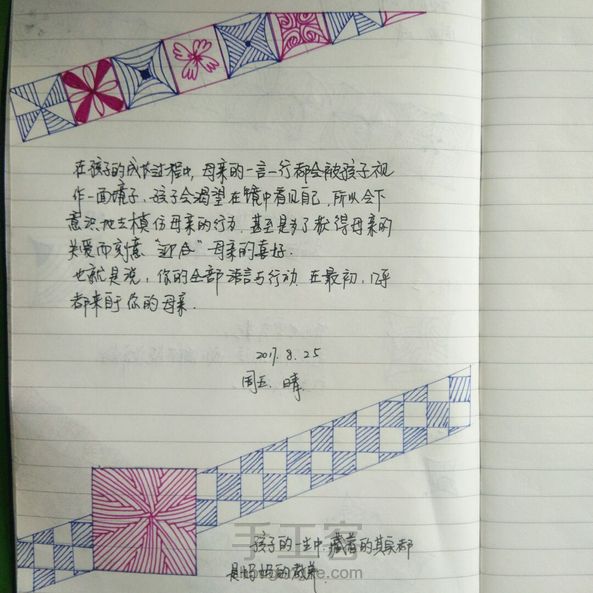 在孩子的成长过程中，母亲的一言一行都会被孩子视
作一面镜子。孩子会渴望在镜中看见自己，所以会下
意识地去模仿母亲的行为，甚至是为了获得母亲的
关爱而刻意“迎合”母亲的喜好。
也就是说，你的全部语言与行动，在最初，几乎
都来自于你的母亲。
2017.8.25
周五 晴
手工客
孩子的一生中，藏着的其实都
是妈妈的教养